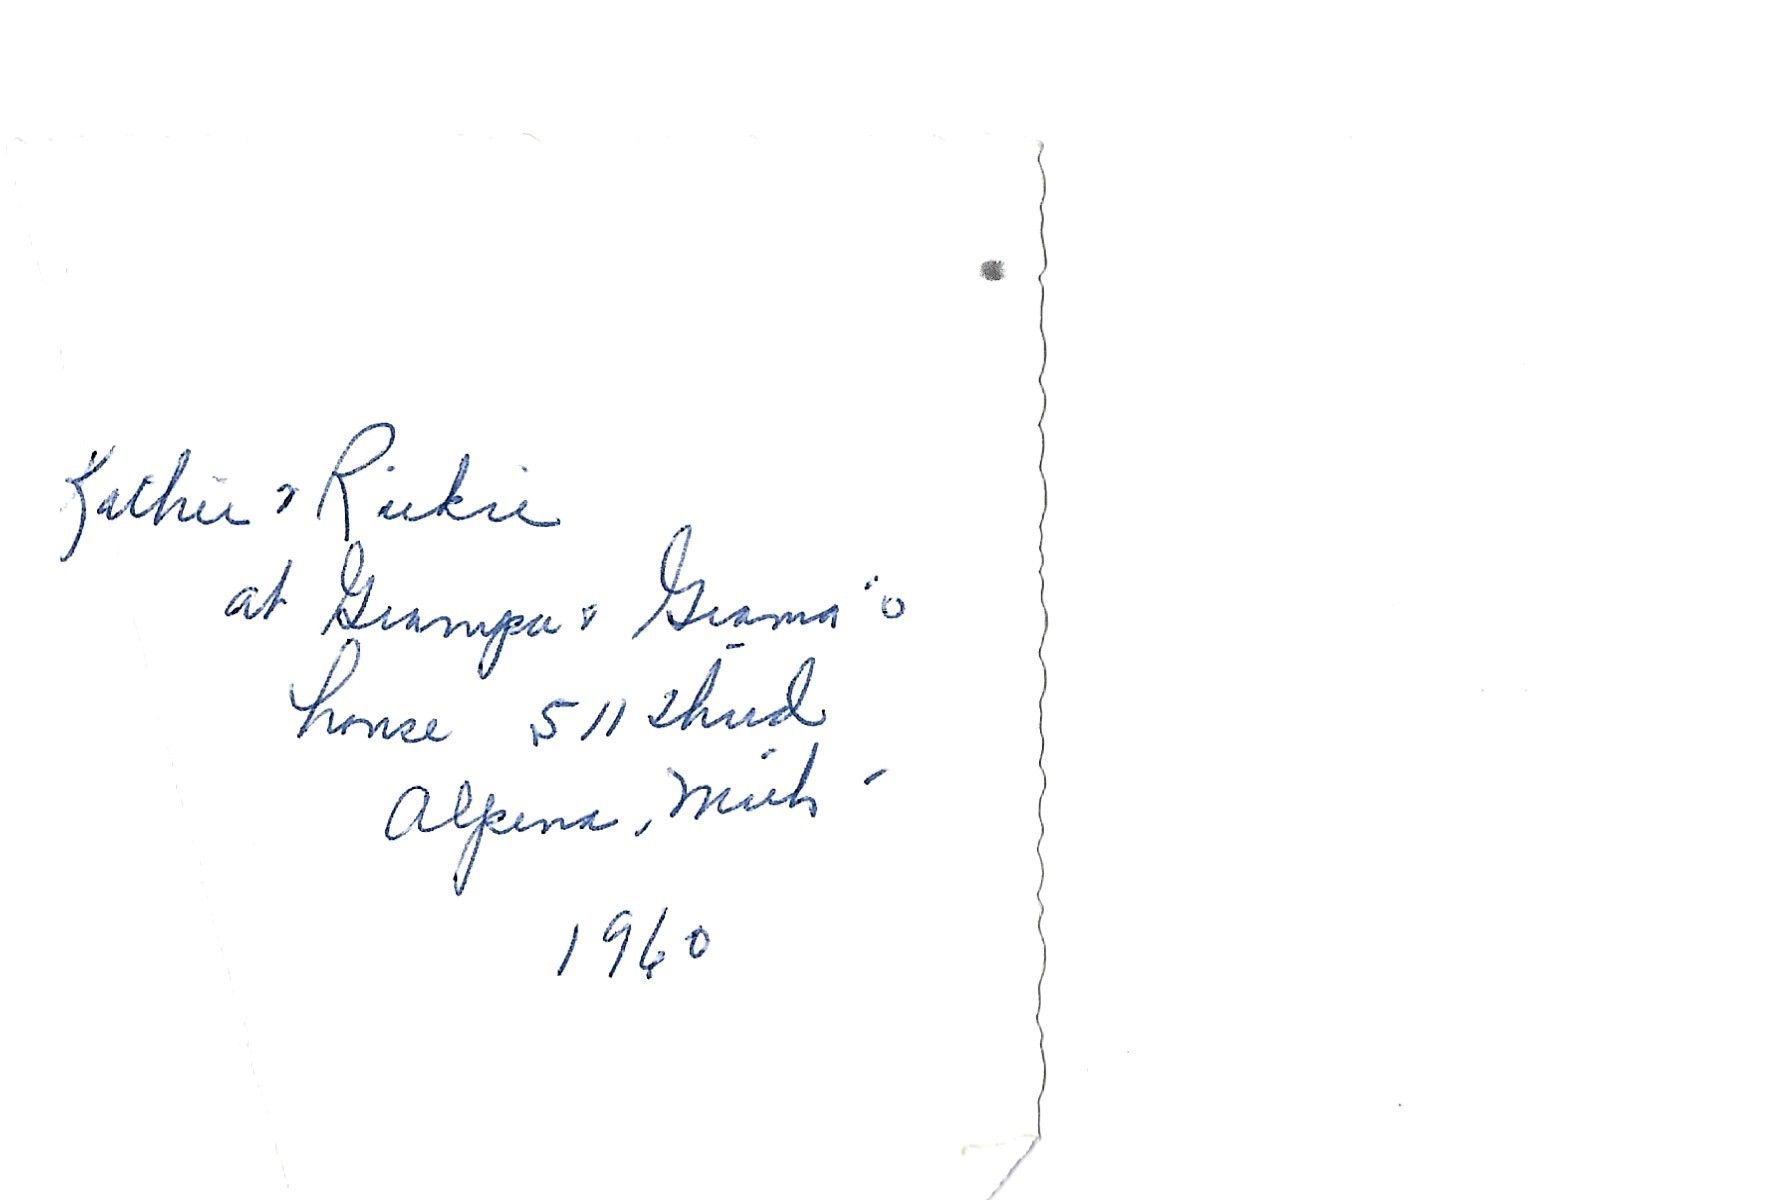 Kathie & Rickie
at Grampa & Grama's
house 511 Third
Alpena, Mich -
1960